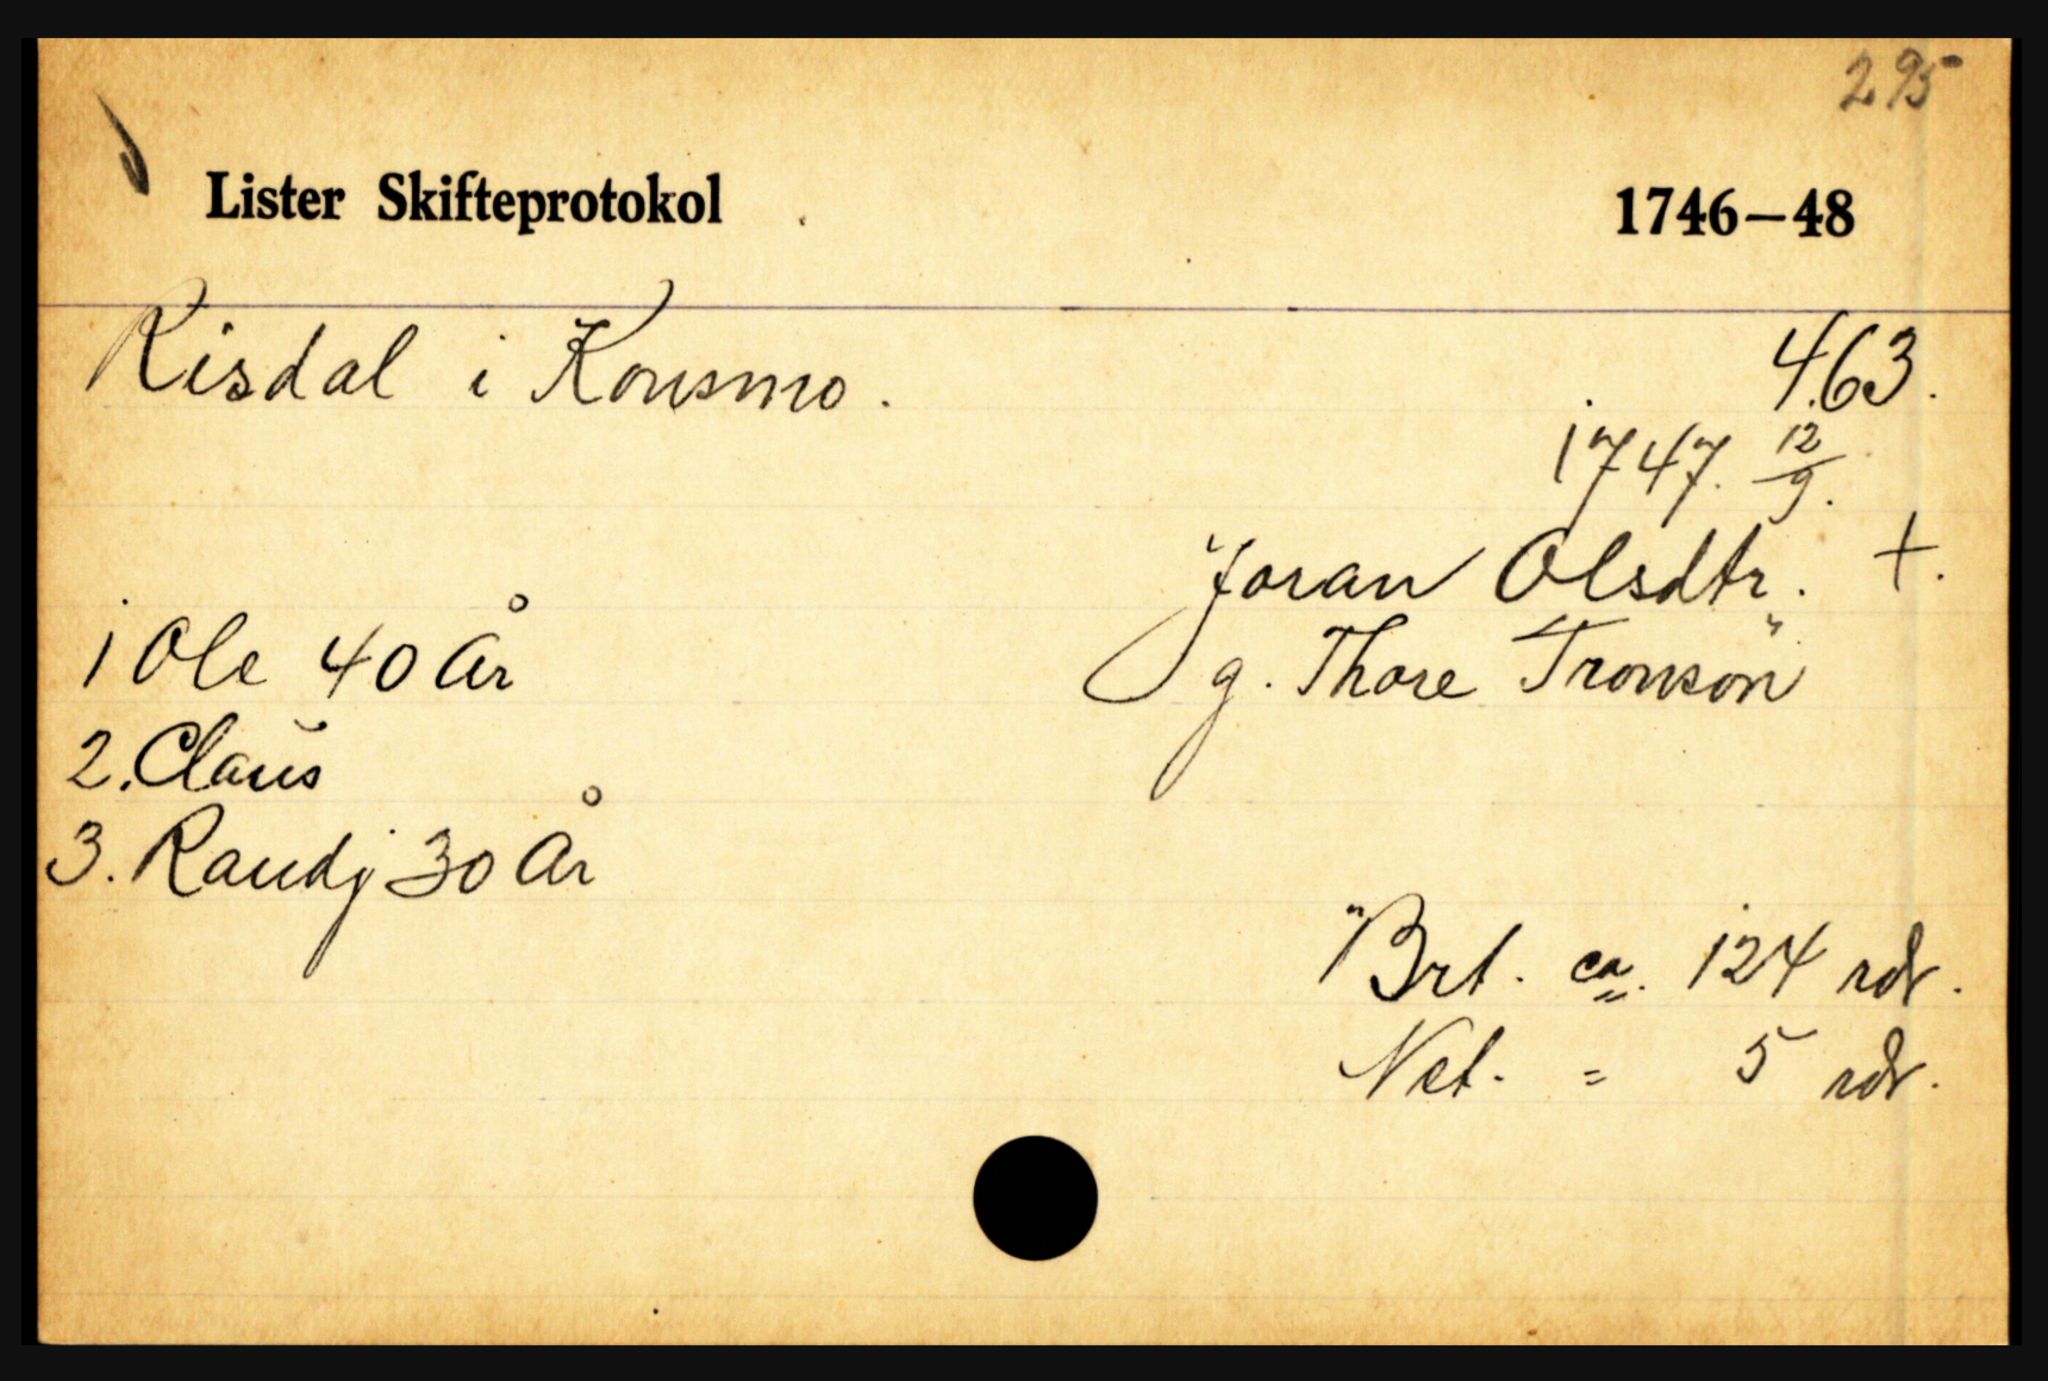 295
Lister Skifteprotokol 1746–48
Risdal i Konsmo. 463.
1747. 12/9.
Joran Olsdtr. +.
g. Thore Tronsön
1 Ole 40 År
2. Claus
3. Randj 30 År
Brt. ca. 124 rdr.
Net. = 5 rdr.